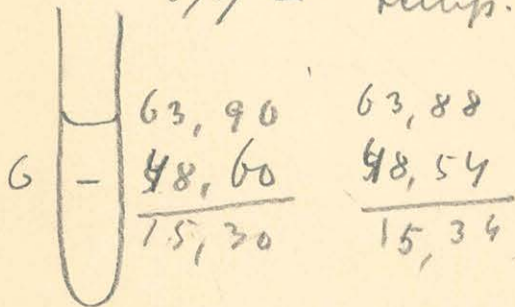 63,90 63,88
6 - 48,60 48,54
15,30 15,34